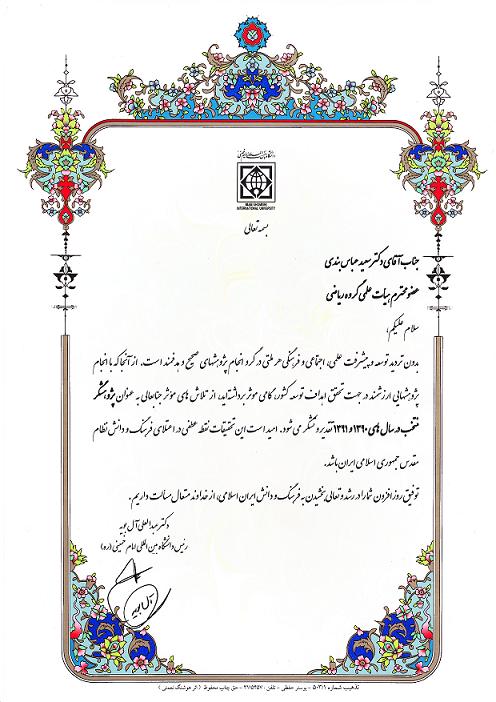 دانشگاه بین المللی امام خمینی
IMAM KHOMEINI
INTERNATIONAL UNIVERSITY
بسمه تعالی
جناب آقای دکتر سعید عباس بندی
عضو محترم هیات علمی گروه ریاضی
سلام علیکم؛
بدون تردید توسعه و پیشرفت علمی، اجتماعی و فرهنگی هر ملتی در گرو انجام پژوهشهای صحیح و هدفمند است. از آنجا که با انجام
پژوهشهایی ارزشمند در جهت تحقق اهداف توسعه کشور، گامی موثر برداشته‌اید، از تلاش های موثر جنابعالی به عنوان پژوهشگر
منتخب در سال های ۱۳۹۰ و ۱۳۹۱ تقدیر و تشکر می شود. امید است این تحقیقات نقطه عطفی در اعتلای فرهنگ و دانش نظام
مقدس جمهوری اسلامی ایران باشد.
توفیق روز افزون شما را در رشد و تعالی بخشیدن به فرهنگ و دانش ایران اسلامی، از خداوند متعال مسألت داریم.
دکتر عبدالعلی آل بویه
رئیس دانشگاه بین المللی امام خمینی (ره)
آل بویه
تذهیب شماره ۵۰۳۱۱ - پوستر حفظی - تلفن: ۳۱۱۵۴۵۷ - حق چاپ محفوظ (اثر هوشنگ نعمتی)